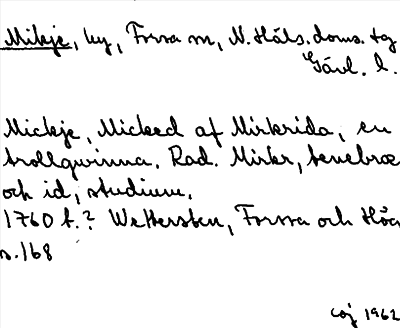 Mikje, by, Forsa sn, N. Häls. doms. tg
Gävl. l.
Mickje, Micked af Mirkrida, en
trollqwinna. Rad. Mirkr, tenebræ
och id, studium.
1760 t.? Wettersten, Forssa och Hög
s. 168
1962